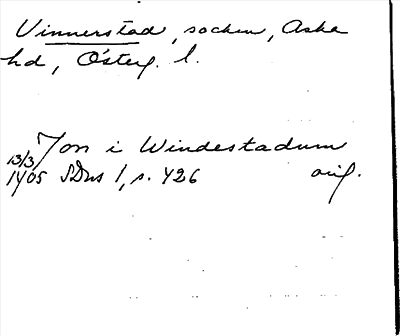 Vinnerstad, socken, Aska
hd, Österg. l.
Jon i Windestadum
13/3 1405 SDns 1, s. 426 orig.